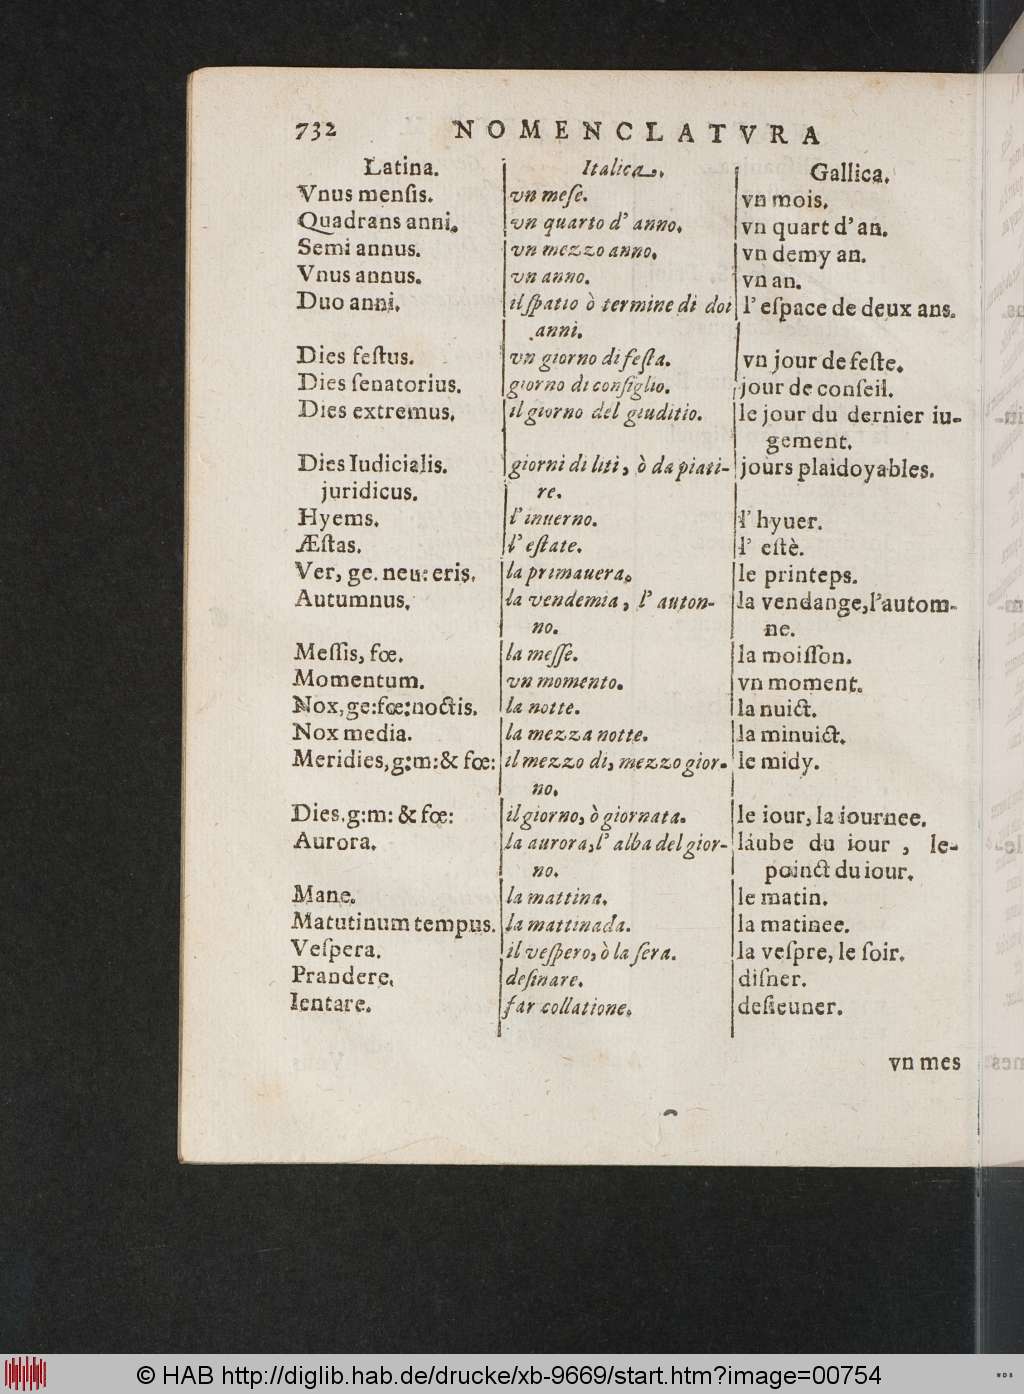 732 NOMENCLATVRA
Latina. Italica. Gallica.
Vnus menſis. vn meſe. vn mois.
Quadrans anni. vn quarto d' anno. vn quart d' an.
Semi annus. vn mezzo anno. vn demy an.
Vnus annus. vn anno. vn an.
Duo anni. il ſpatio ò termine di doi l' eſpace de deux ans.
anni.
Dies feſtus. vn giorno di feſta. vn jour de feſte.
Dies ſenatorius. giorno di conſiglio. jour de conſeil.
Dies extremus. il giorno del giuditio. le jour du dernier iu-
gement.
Dies Iudicialis. giorni di liti, ò da piati- jours plaidoyables.
juridicus. re.
Hyems. l' inuerno. l' hyuer.
Æſtas. l' eſtate. l' eſtè.
Ver, ge. neu: eris. la primauera. le printeps.
Autumnus. la vendemia, l' auton- la vendange, l'autom-
no. ne.
Meſſis, fœ. la meſſe. la moiſſon.
Momentum. vn momento. vn moment.
Nox, ge: fœ: noctis. la notte. la nuict.
Nox media. la mezza notte. la minuict.
Meridies, g: m: & fœ: il mezzo di, mezzo gior- le midy.
no.
Dies. g: m: & fœ: il giorno, ò giornata. le iour, la iournee.
Aurora. la aurora, l' alba del gior- láube du iour, le-
no. poinct du iour.
Mane. la mattina. le matin.
Matutinum tempus. la mattinada. la matinee.
Veſpera. il veſpero, ò la ſera. la veſpre, le ſoir.
Prandere. deſinare. diſner.
Ientare. far collatione. deſieuner.
vn mes
© HAB http://diglib.hab.de/drucke/xb-9669/start.htm?image=00754